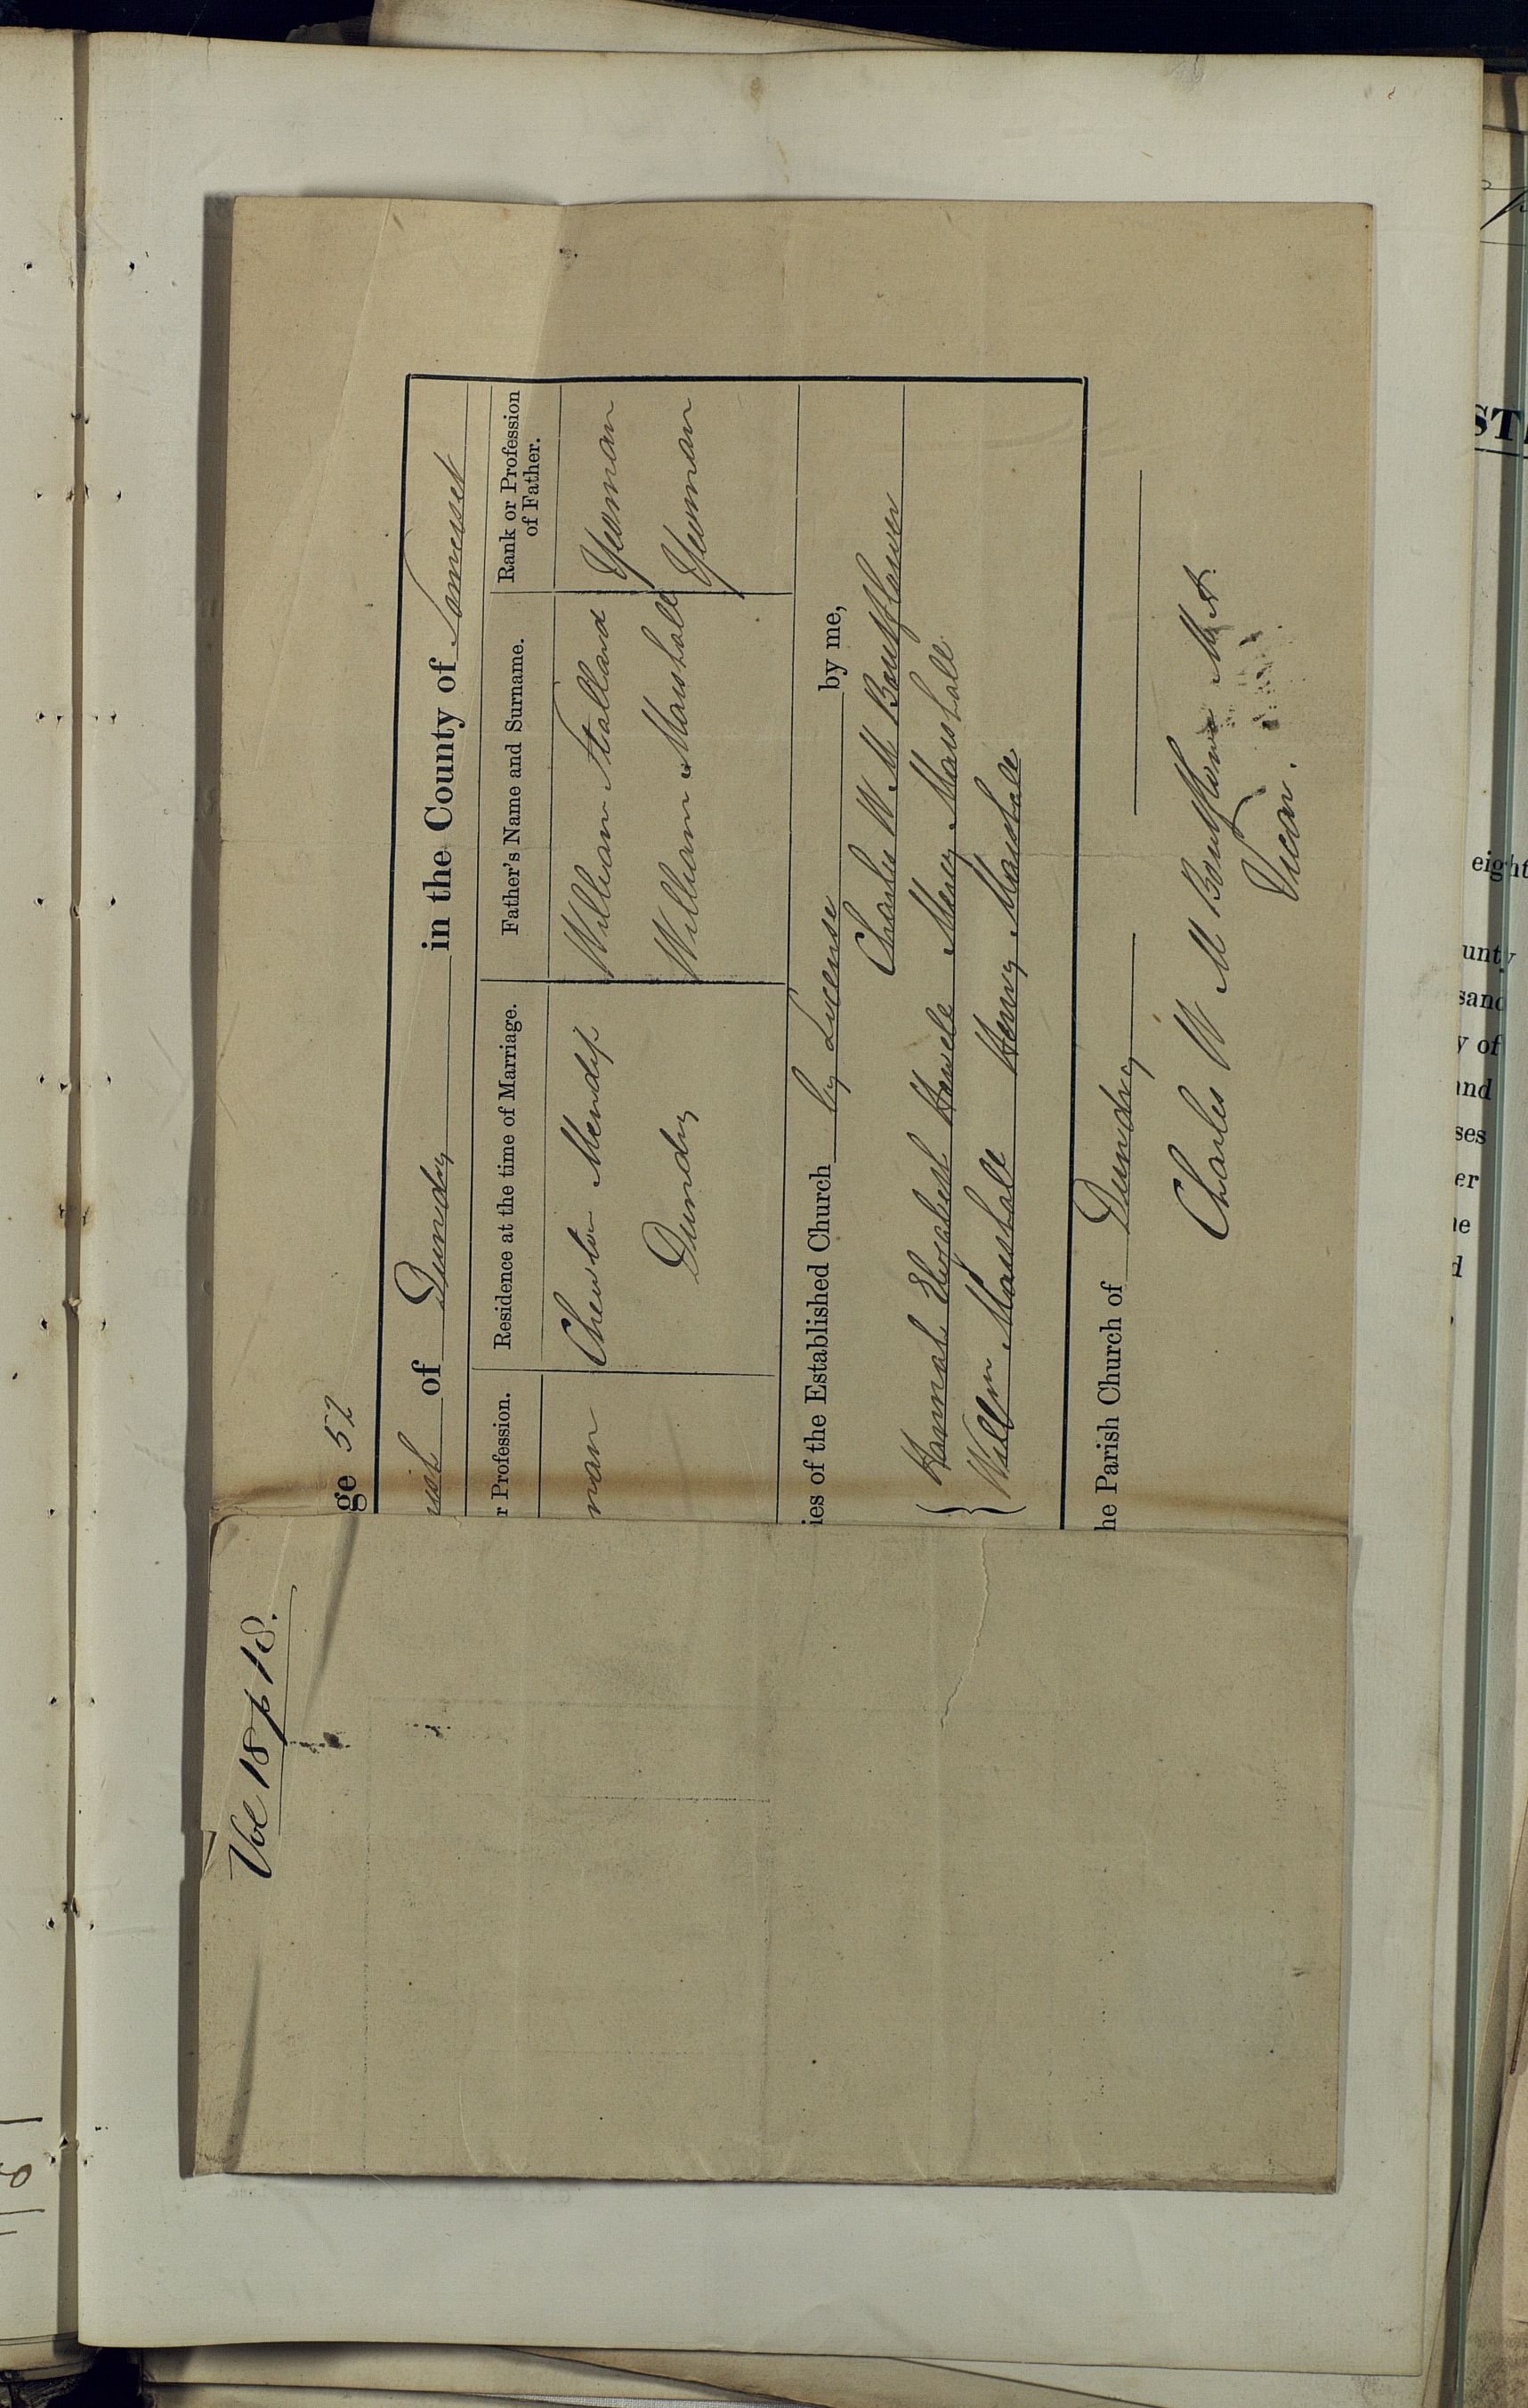 Vol 18 p 18.
ge 52
of Dundry in the County of Somerset
r Profession. Residence at the time of Marriage. Father's Name and Surname. Rank or Profession of Father.
man Chewton Mendip William Stallard Yeoman
Dundry William Marshall Yeoman
ies of the Established Church by Licence by me,
Charles W M Boutflower
Hannah Elizabeth Mercy Marshall
Willm Marshall Henry Marshall
he Parish Church of Dundry
Charles W M Boutflower M.A.
Vicar.
ST
eight
unty
sand
y of
and
ses
er